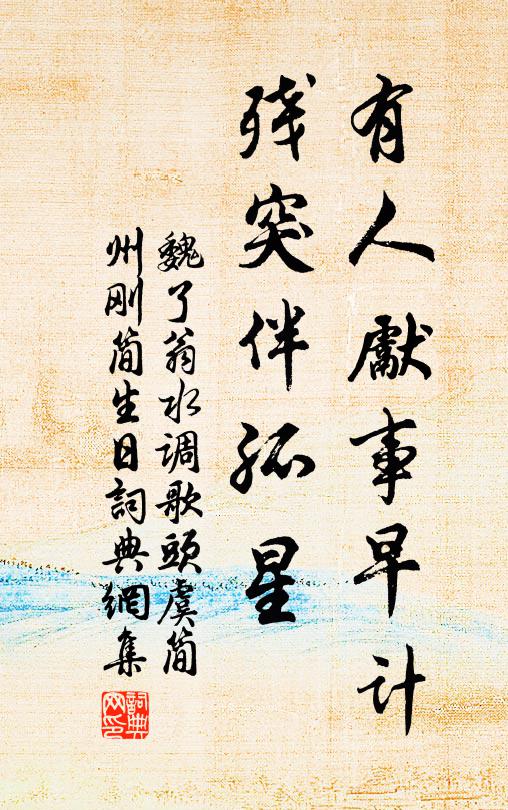 有人献事早计
残突伴孤星
魏了翁水调歌頭虞简
州刚简生日詞典網集
詞典网印